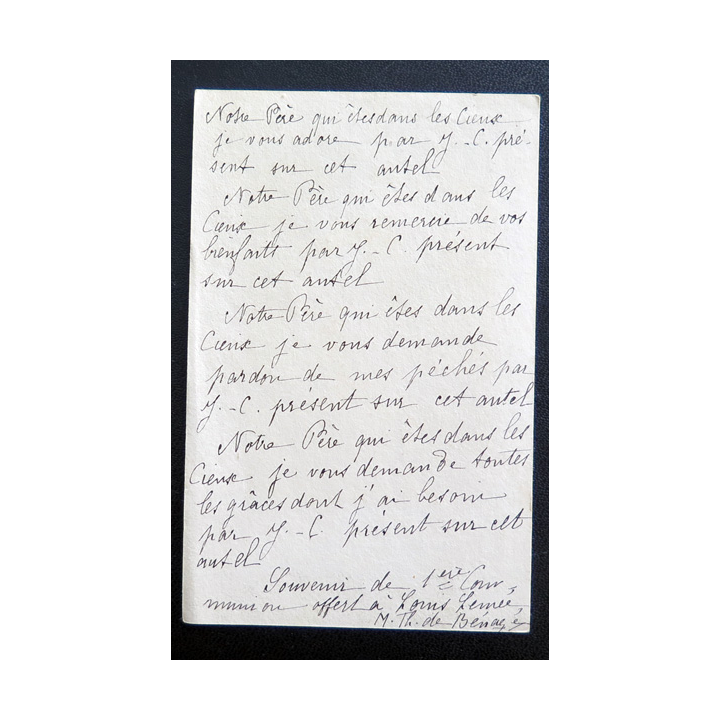 Notre Père qui êtes dans les Cieux
je vous adore par J.-C. pré-
sent sur cet autel
Notre Père qui êtes dans les
Cieux je vous remercie de vos
bienfaits par J.-C. présent
sur cet autel
Notre Père qui êtes dans les
Cieux je vous demande
pardon de mes péchés par
J.-C. présent sur cet autel
Notre Père qui êtes dans les
Cieux je vous demande toutes
les grâces dont j'ai besoin
par J.-C. présent sur cet
autel
Souvenir de 1ère Com-
munion offert à Louis Lemée,
M. Th. de